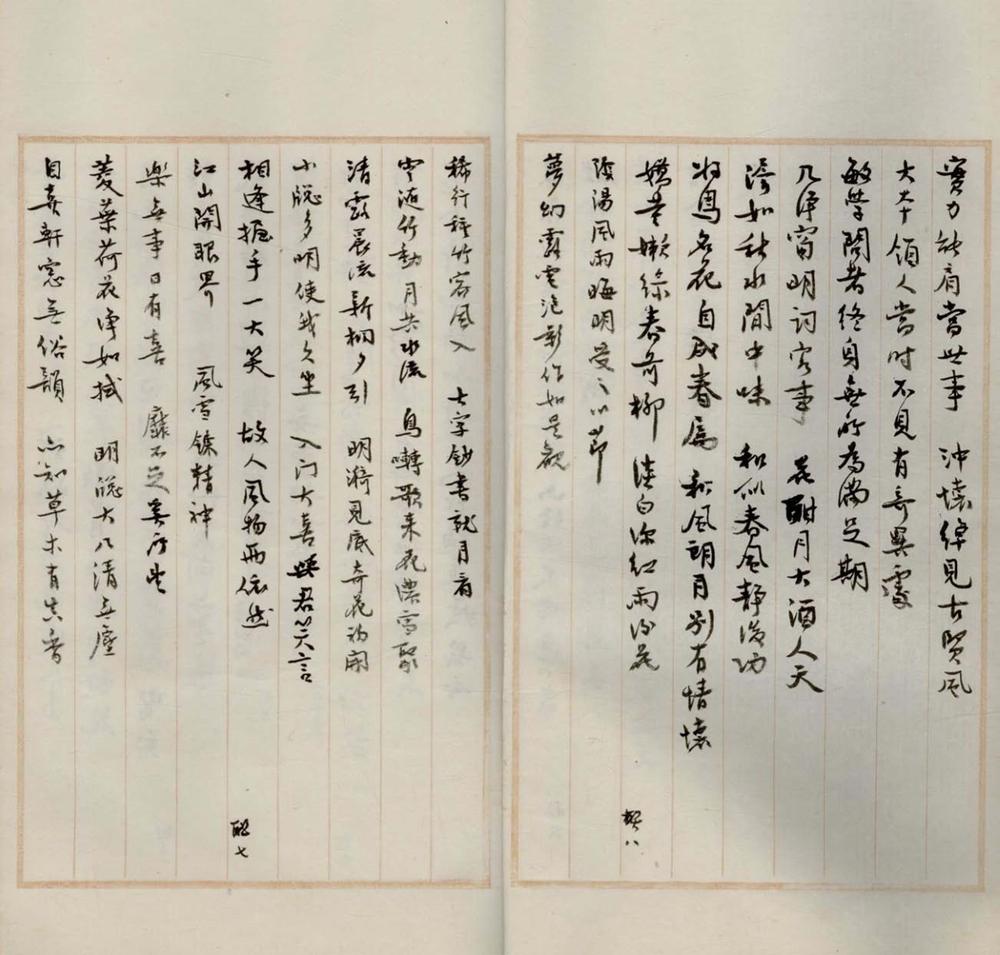 實力能肩當世事 沖懷綽見古賢風
大本領人當時不見有奇異處
敏學問者終自無所為滿足期
几淨窗明詞客事 花酣月大酒人天
濤如秋水閒中味 和似春風靜後功
好鳥名花自成春屬 和風朗月別有情懷
嬌黃嫩綠春前柳 淺白深紅雨後花
陰湯風雨晦明受之以節
夢幻露電泡影作如是觀
契八
稀行種竹容風入 大字鈔書就月看
雲隨竹動月共水流 鳥囀歌來花濃雪聚
清露晨流新桐夕引 明漪見底奇花初開
小窗多明使我久坐 入門大喜與君笑言
相逢握手一大笑 故人風物兩依然
配七
江山開眼界 風雪鍊精神
樂無事日有喜 靡不足奚所求
菱葉荷花淨如拭 明窗大几清無塵
自喜軒窗無俗韻 亦知草木有真香